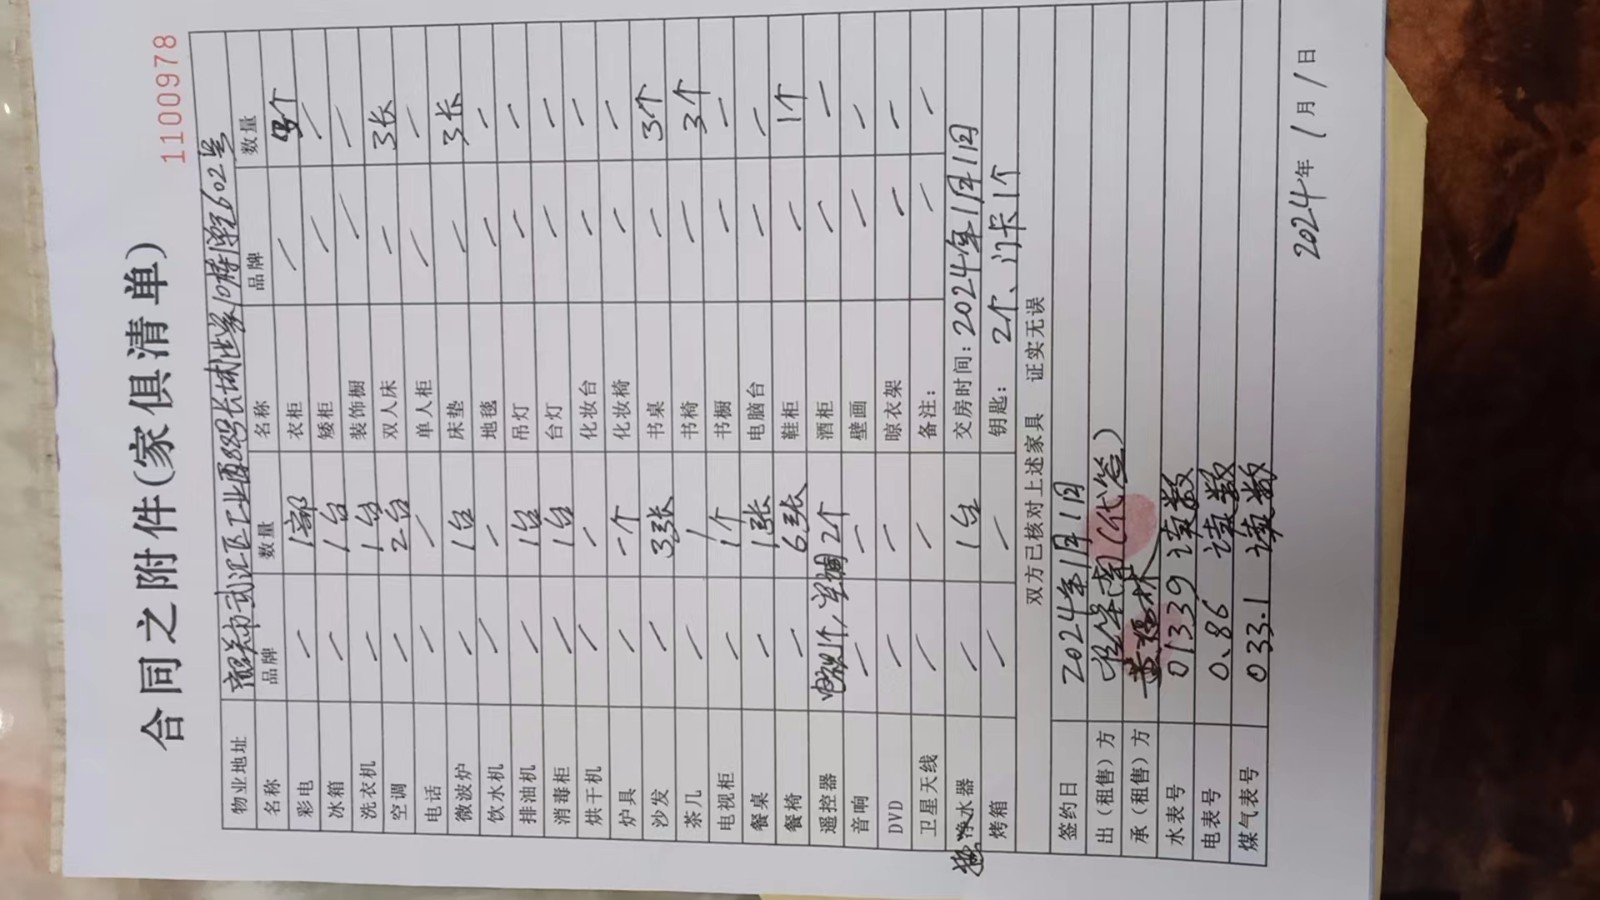 1100978
合同之附件(家俱清单)
物业地址 韶关市武江区工业西路88号长城世家10栋 602
名称 品牌 数量 名称 品牌 数量
彩电 / 1部 衣柜 / 个
冰箱 / 1台 矮柜 / /
洗衣机 / 1台 装饰橱 / /
空调 / 2台 双人床 / 3张
电话 / / 单人柜 / /
微波炉 / 1台 床垫 / 3张
饮水机 / / 地毯 / /
排油机 / 1台 吊灯 / /
消毒柜 / 1台 台灯 / /
烘干机 / / 化妆台 / /
炉具 / 一个 化妆椅 / /
沙发 / 3张 书桌 / 3个
茶几 / / 书椅 / 3个
电视柜 / 1个 书橱 / /
餐桌 / 1张 电脑台 / /
餐椅 / 6张 鞋柜 / 1个
遥控器 电视1个,空调2个 酒柜 / /
音响 / / 壁画 / /
DVD / / 晾衣架 / /
卫星天线 / / 备注: / /
净水器 / 1台 交房时间: 2024年1月1日
烤箱 / / 钥匙: 2个、门卡1个
双方已核对上述家具 证实无误
签约日 2024年1月1日
出(租售)方 (代签)
承(租售)方
水表号 01339 读数
电表号 0.86 读数
煤气表号 033.1 读数
2024年1月1日